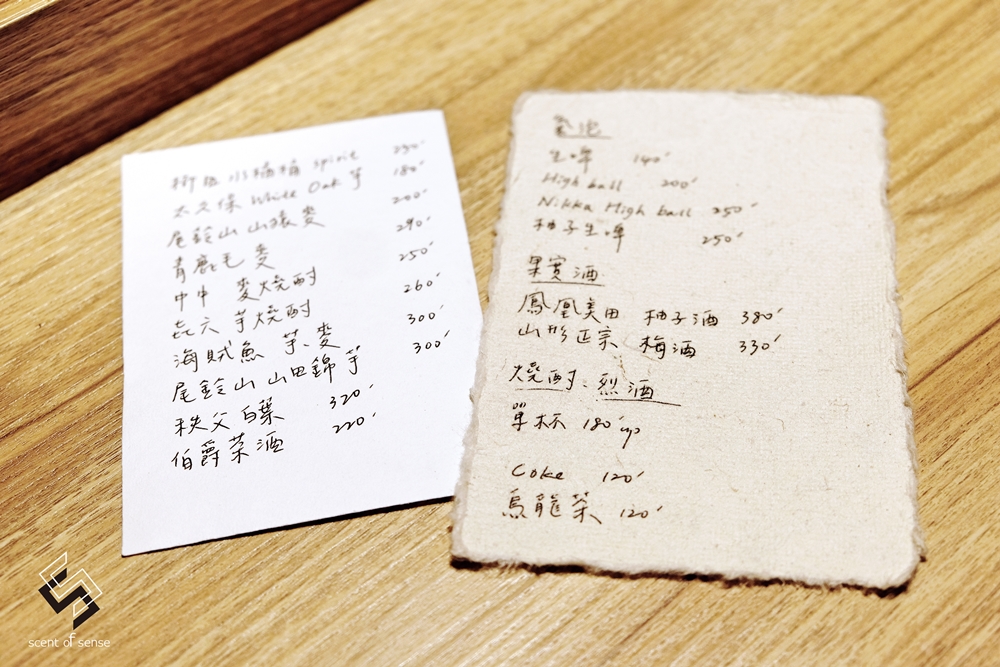 柳田 小桶桶 spirit 230'
大久保 White Oak 芋 180'
尾鈴山 山猿 麥 200'
青鹿毛 麥 290'
中中 麥燒酎 250'
㐂六 芋燒酎 260'
海賊魚 芋、麥 300'
尾鈴山 山田錦 芋 300'
秩父白葉 320'
伯爵茶酒 220'
生啤 140'
High ball 200'
Nikka High ball 250'
柚子生啤 250'
果實酒
鳳凰美田 柚子酒 380'
山形正宗 梅酒 330'
燒酎、烈酒
單杯 180' up
Coke 120'
烏龍茶 120'
scent of sense